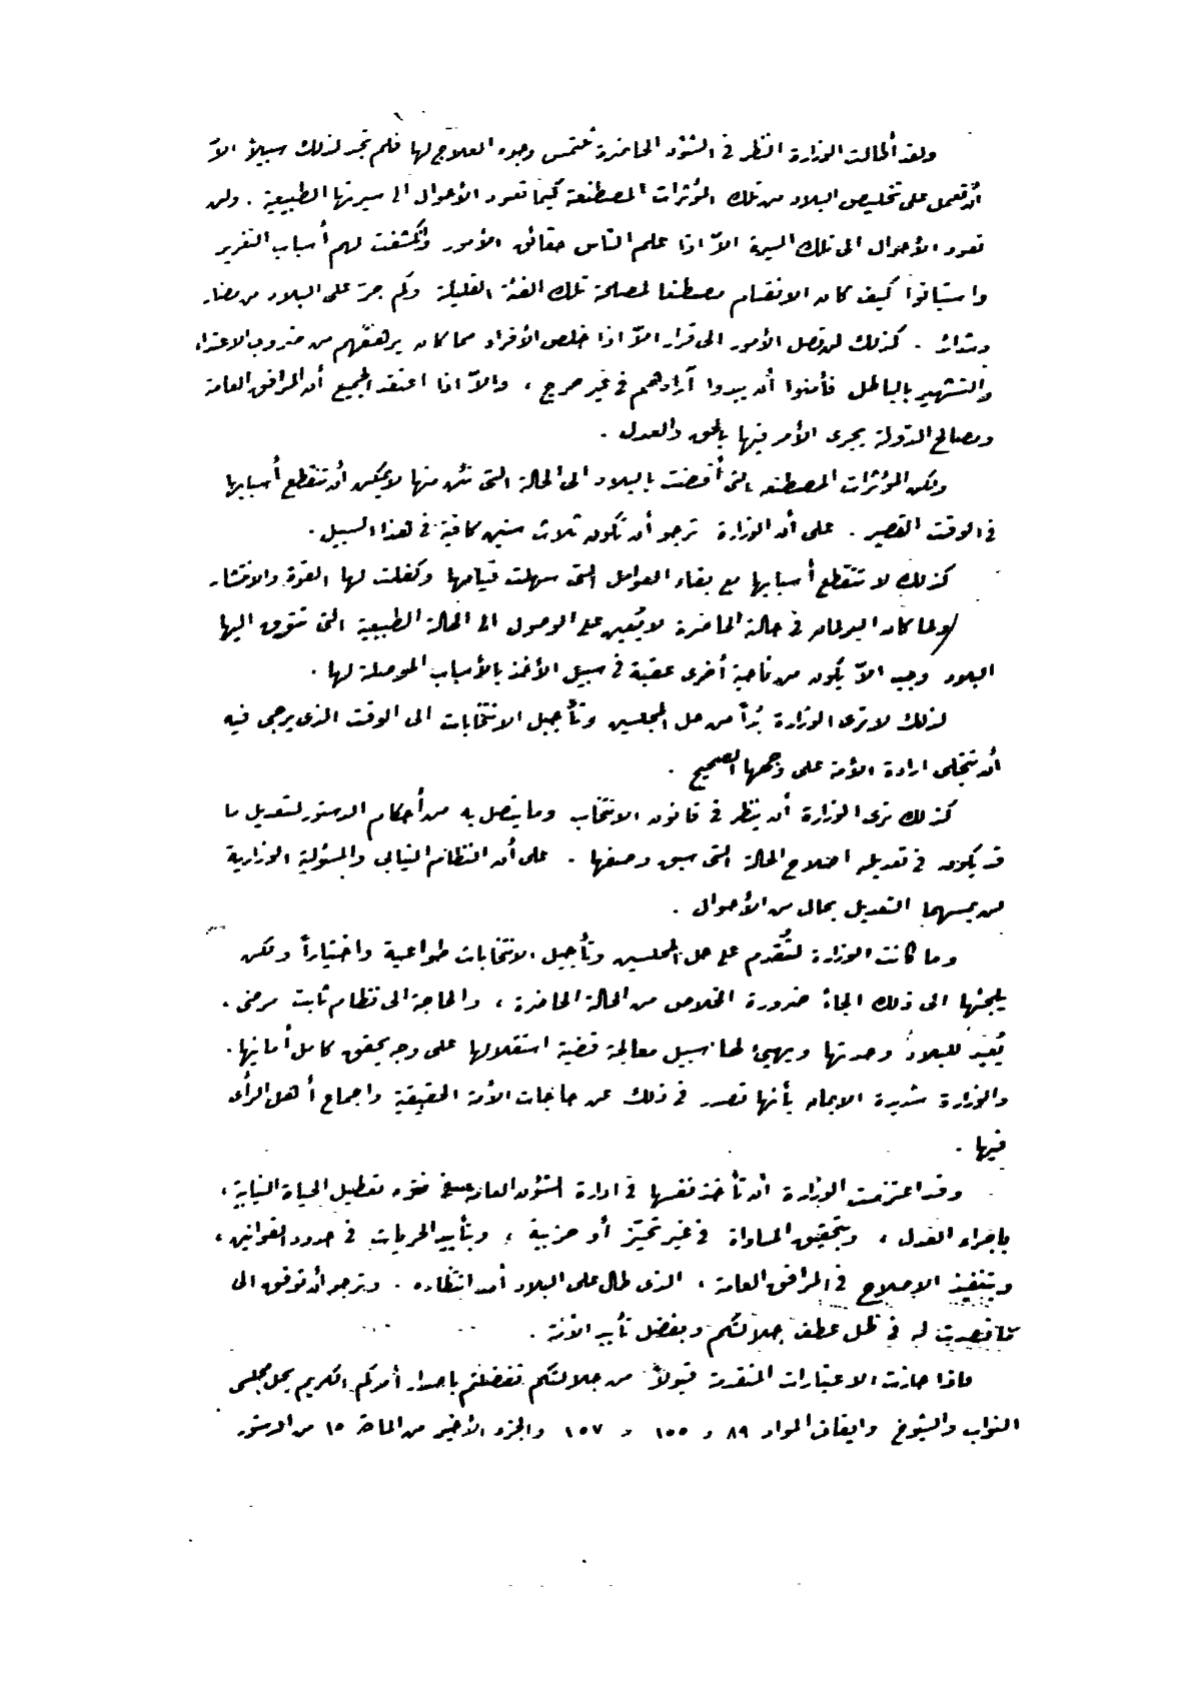 ولقد أطالت الوزارة النظر فى الشئون الحاضرة تلتمس وجوه العلاج لها فلم تجد لذلك سبيلاً الاّ
أن تعمل على تخليص البلاد من تلك المؤثرات المصطنعة كيما تعود الأحوال الى سيرتها الطبيعية . ولن
تعود الأحوال الى تلك السيرة الاّ اذا علم الناس حقائق الأمور وانكشفت لهم أسباب التغرير
واستبانوا كيف كان الانقسام مصطنعا لمصلحة تلك الفئة القليلة وكم جر على البلاد من مضار
وشدائد . كذلك لن تصل الأمور الى قرار الاّ اذا خلص الأفراد مما كان يرهقهم من ضروب الاعتداء
والتشهير بالباطل فأمنوا أن يبدوا آراءهم فى غير حرج ، والاّ اذا اعتقد الجميع أن المرافق العامة
ومصالح الدولة يجرى الأمر فيها بالحق والعدل .
ولكن المؤثرات المصطنعه التى أفضت بالبلاد الى الحالة التى تئن منها لا يمكن أن تنقطع أسبابها
فى الوقت القصير . على أن الوزارة ترجو أن تكون ثلاث سنين كافية فى هذا السبيل .
كذلك لا تنقطع أسبابها مع بقاء العوامل التى سهلت قيامها وكفلت لها القوة والانتشار
ولما كان البرلمان فى حالته الحاضرة لا يُعين على الوصول الى الحالة الطبيعية التى تتوق اليها
البلاد وجب الاّ يكون من ناحية أخرى عقبة فى سبيل الأخذ بالأسباب الموصلة لها .
لذلك لا ترى الوزارة بُدّاً من حل المجلسين وتأجيل الانتخابات الى الوقت الذى يرجى فيه
أن تتجلى ارادة الأمة على وجهها الصحيح .
كذلك ترى الوزارة أن ينظر فى قانون الانتخاب وما يتصل به من أحكام الدستور لتعديل ما
قد يكون فى تعديله اصلاح الحالة التى سبق وصفها . على أن النظام النيابى والمسئولية الوزارية
لن يمسهما التعديل بحال من الأحوال .
وما كانت الوزارة لتُقدم على حل المجلسين وتأجيل الانتخابات طواعية واختياراً ولكن
يلجئها الى ذلك الجاءً ضرورة الخلاص من الحالة الحاضرة ، والحاجة الى نظام ثابت مرضى ،
يُعيد للبلاد وحدتها ويهيئ لها سبيل معالجة قضية استقلالها على وجه يحقق كامل أمانيها .
والوزارة شديرة الايمان بأنها تصدر فى ذلك عن حاجات الأمة الحقيقية واجماع أهل الرأى
فيها .
وقد اعتزمت الوزارة أن تأخذ نفسها فى ادارة الشئون العامة فى ضوء تعطيل الحياة النيابية ،
باجراء العدل ، وبتحقيق المساواة فى غير تحيّز أو حزبية ، وبتأييد الحريات فى حدود القوانين ،
وبتنفيذ الاصلاح فى المرافق العامة ، الذى طال على البلاد أمد انتظاره . وترجو أن توفق الى
ما قصدت له فى ظل عطف جلالتكم وبفضل تأييد الأمة .
فاذا حازت الاعتبارات المتقدمة قبولاً من جلالتكم تفضلتم باصدار أمركم الكريم بحل مجلسى
النواب والشيوخ وايقاف المواد ٨٩ و ١٥٥ و ١٥٧ والجزء الأخير من المادة ١٥ من الدستور